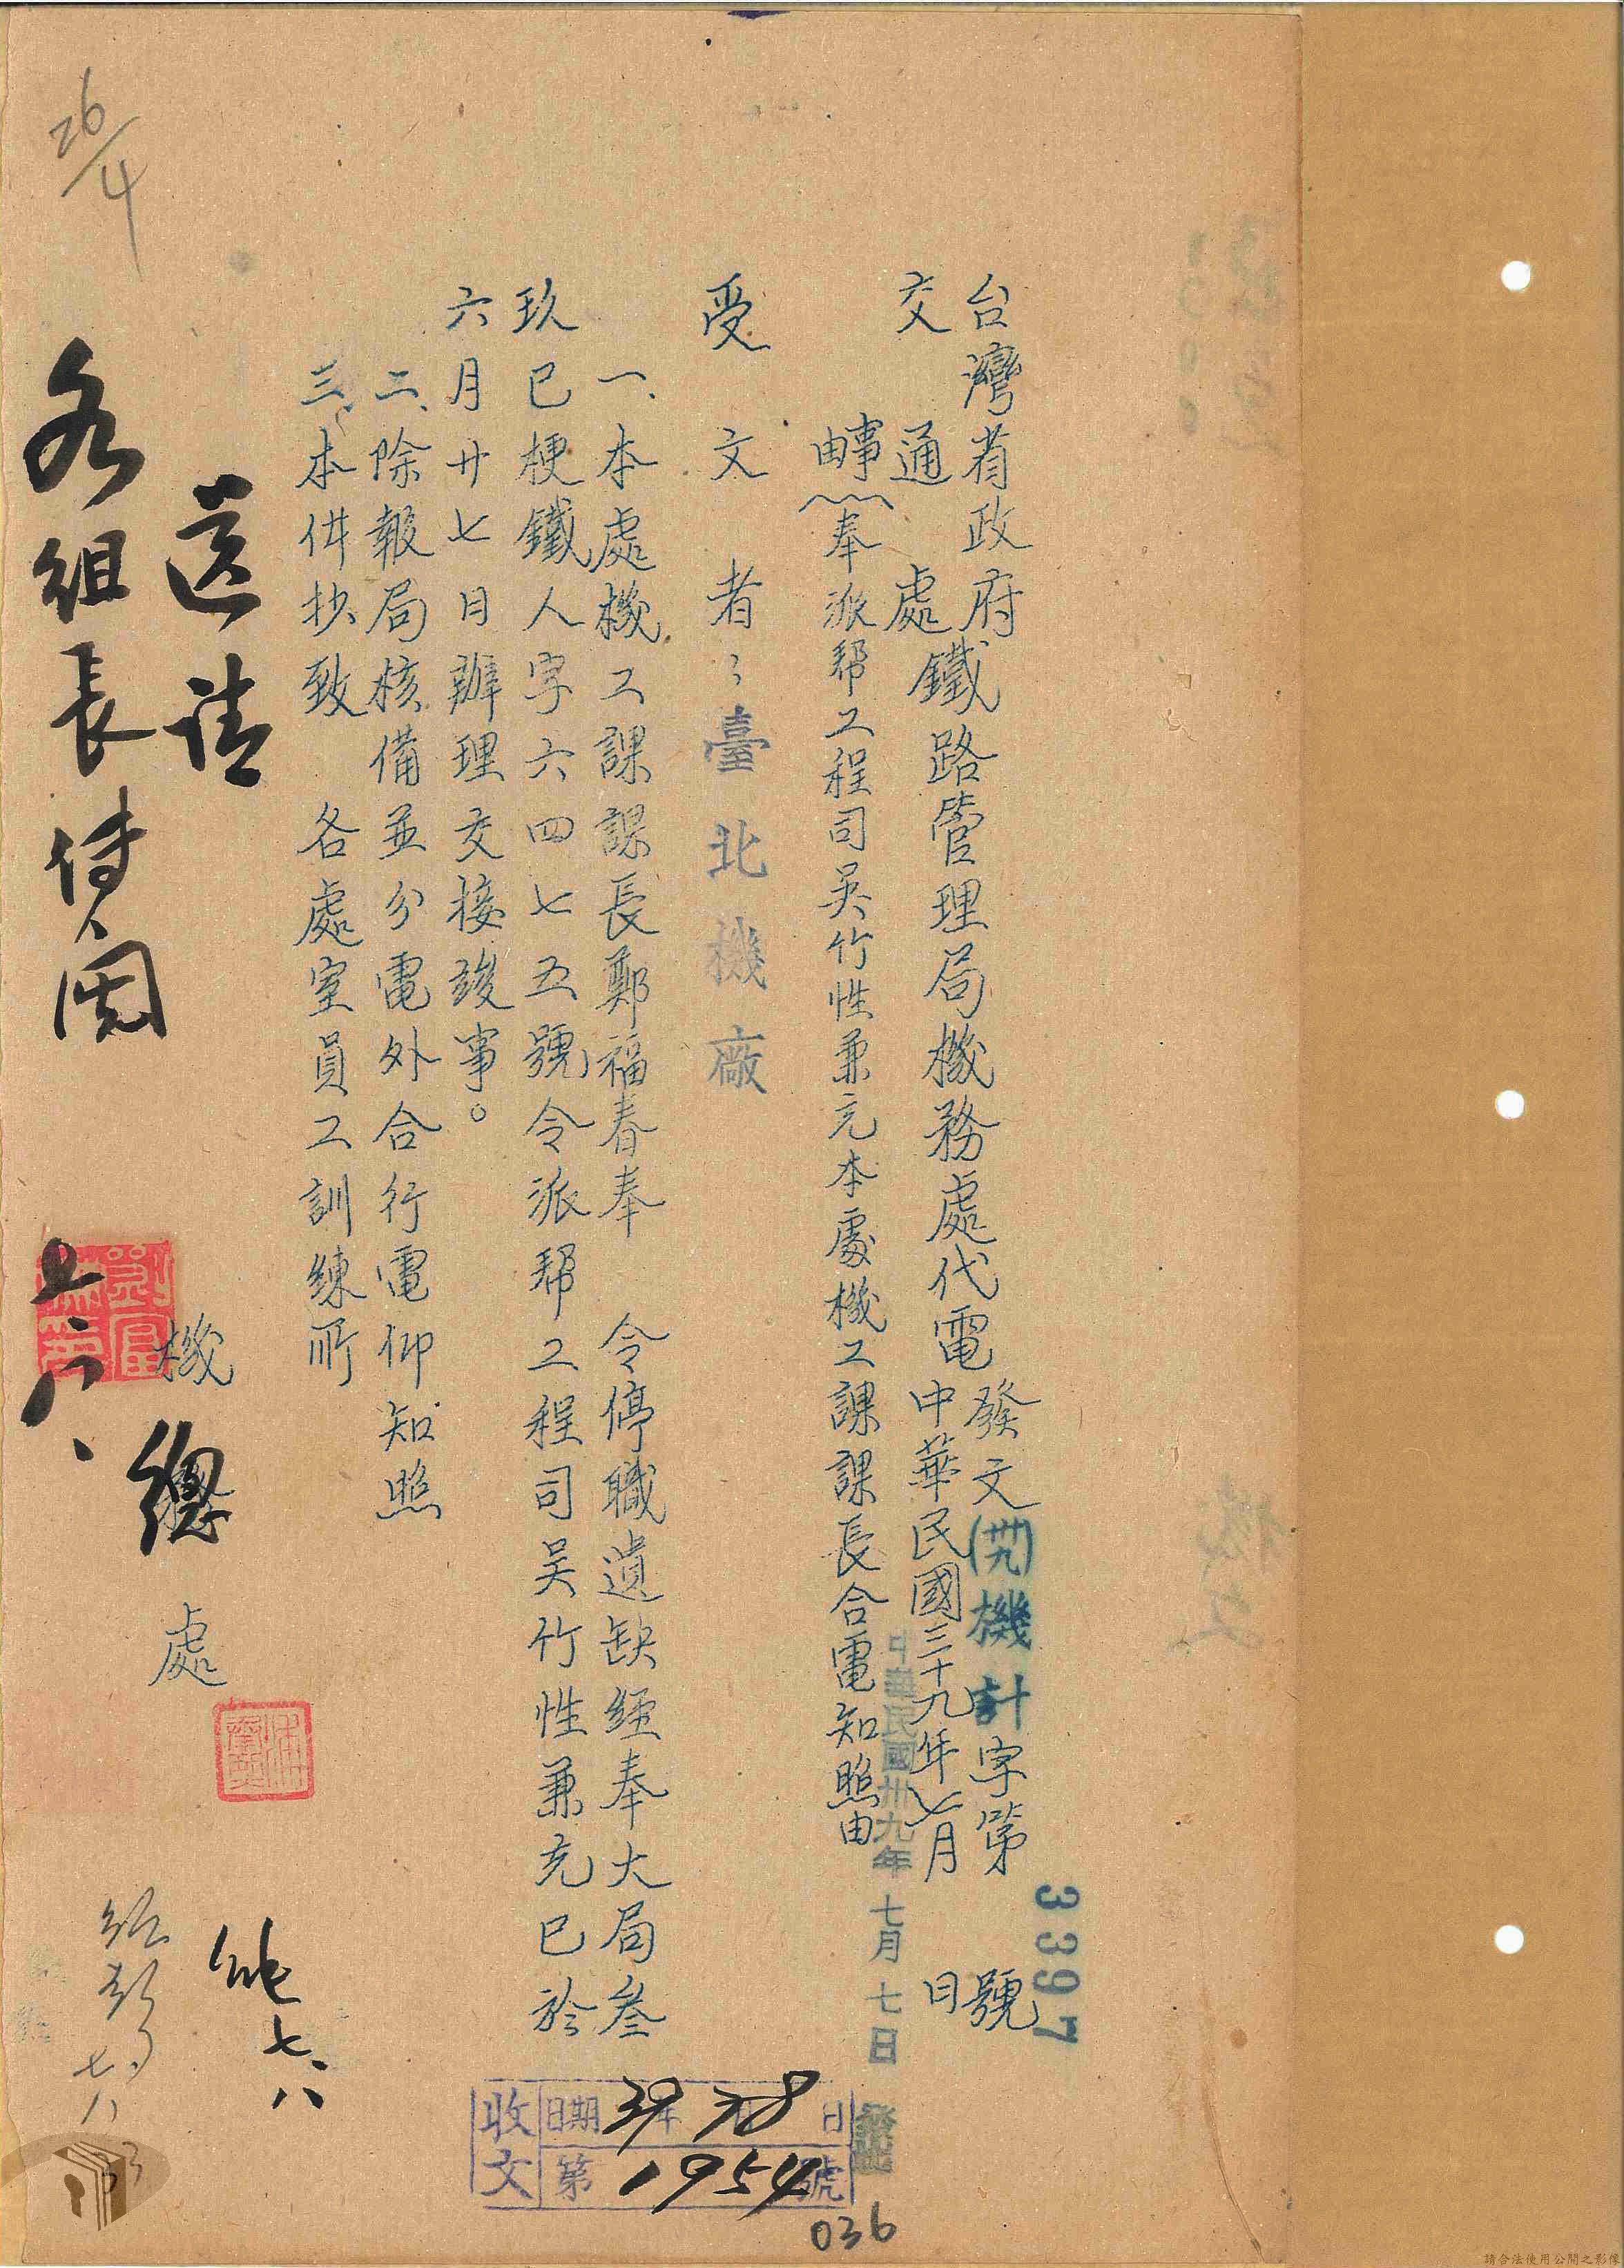 台灣省政府
交通處
鐵路管理局機務處代電
發文(卅九)機計字第3397號
中華民國三十九年七月 日
中華民國卅九年七月七日
事由
奉派帮工程司吳竹性兼充本處機工課課長合電知照由
受文者:臺北機廠
一、本處機工課課長鄭福春奉 令停職遺缺經奉大局叁
玖巳梗鐵人字六四七五號令派帮工程司吴竹性兼充已於
六月廿七日辦理交接竣事。
二、除報局核備並分電外合行電仰知照
三、本件抄致 各處室員工訓練所
機 務 處
總
送請
各組長傳閱
七、八、
七、八
七、八
26/4
收文
日期 39年 7月8日
第 1954 號
036
請合法使用公開之影像